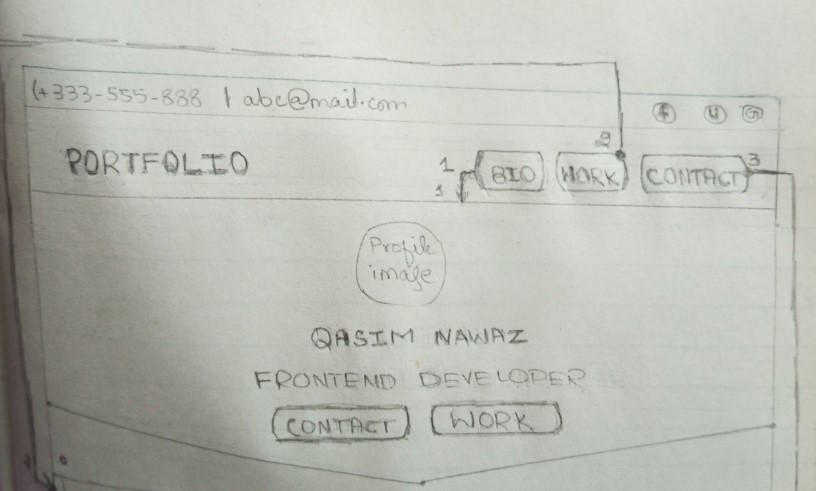 (+333-555-888 | abc@mail.com
PORTFOLIO
1 BIO
2 WORK
CONTACT 3
Profile
image
QASIM NAWAZ
FRONTEND DEVELOPER
CONTACT WORK